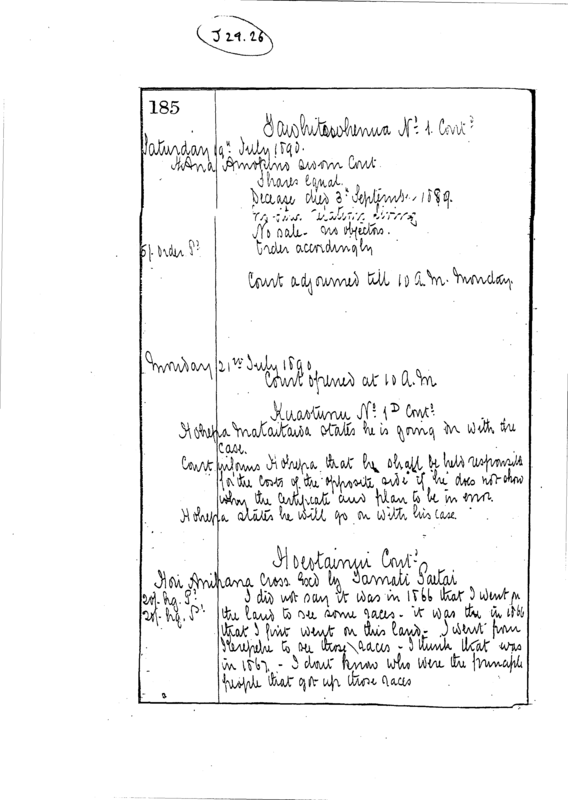 J 29.26
185
Tawhitiwhenua No 1. Contd
Saturday 19th July 1890.
Amopino sworn Cont
Shares Equal.
Decease died 3rd September 1889.
living
No sale - no objectors.
5/. Order Pd Order accordingly
Court adjourned till 10 A.M. Monday.
Monday 21st July 1890
Court opened at 10 A.M
Kuaotunu No 1D Contd
Hohepa Mataitawa states he is going on with the
case.
Court informs Hohepa that he shall be held responsible
for the costs of the opposite side if he does not show
why the Certificate and plan to be in error.
Hohepa states he will go on with his case.
Hoeotainui Contd
Hori Anihana Cross Exd by Tamati Paetai
20/. hg. Pd I did not say it was in 1866 that I went on
20/. hg. Pd the land to see some races - it was the in 1866
that I first went on this land - I went from
to see those races - I think that was
in 1867 - I dont know who were the principle
people that got up those races